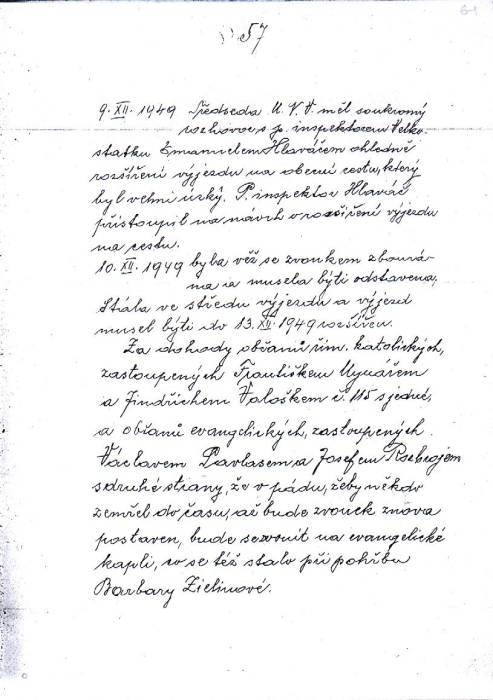 57
9. XII. 1949 Předseda M. N. V. měl soukromý
rozhovor s p. inspektorem Velko-
statku Emanuelem Hlaváčem ohledně
rozšíření výjezdu na obecní cestu, který
byl velmi úzký. P. inspektor Hlaváč
přistoupil na návrh o rozšíření výjezdu
na cestu.
10. XII. 1949 byla věž se zvonkem zbourá-
na a musela býti odstavena,
Stála ve středu výjezdu a výjezd
musel býti do 13. XII. 1949 rozšířen.
Za dohody občanů řím. katolických,
zastoupených Františkem
a Jindřichem Valoškem č. 115 s jedné,
a občanů evangelických, zastoupených
Václavem Pavlasem, a Josefem
s druhé strany, že v pádu, žeby někdo
zemřel do času, až bude zvonek znova
postaven, bude se zvonit na evangelické
kapli, co se též stalo při pohřbu
Barbary Zielinové.